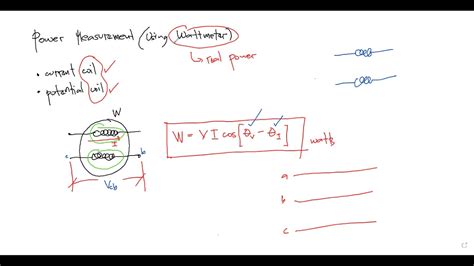 Power Measurement (Using Wattmeter)
↳ real power
• current coil ✓
• potential coil ✓
W
I
c b
Vcb
W = V I cos[θv - θI]
watts
a
b
c